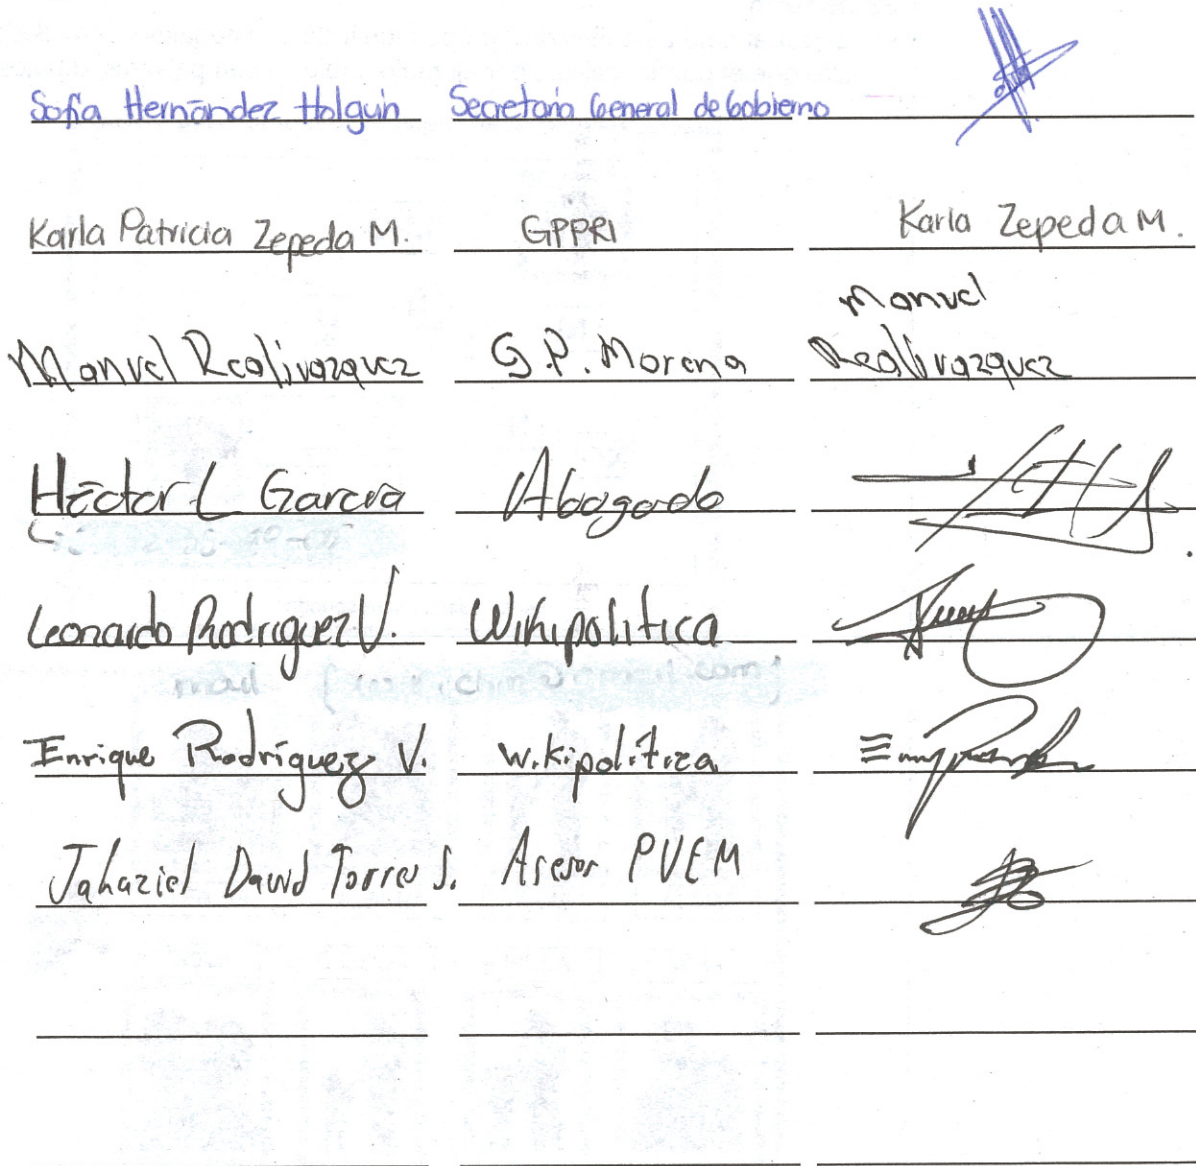 Sofia Hernández Holguin Secretaria General de Gobierno
Karla Patricia Zepeda M. GPPRI Karla Zepeda M.
Manuel
Manuel Realivazquez G.P. Morena Realivazquez
Héctor L Garcia Abogado
Leonardo Rodriguez V. Wikipolitica
Enrique Rodríguez V. Wikipolítica
Jahaziel David Torres S. Asesor PVEM